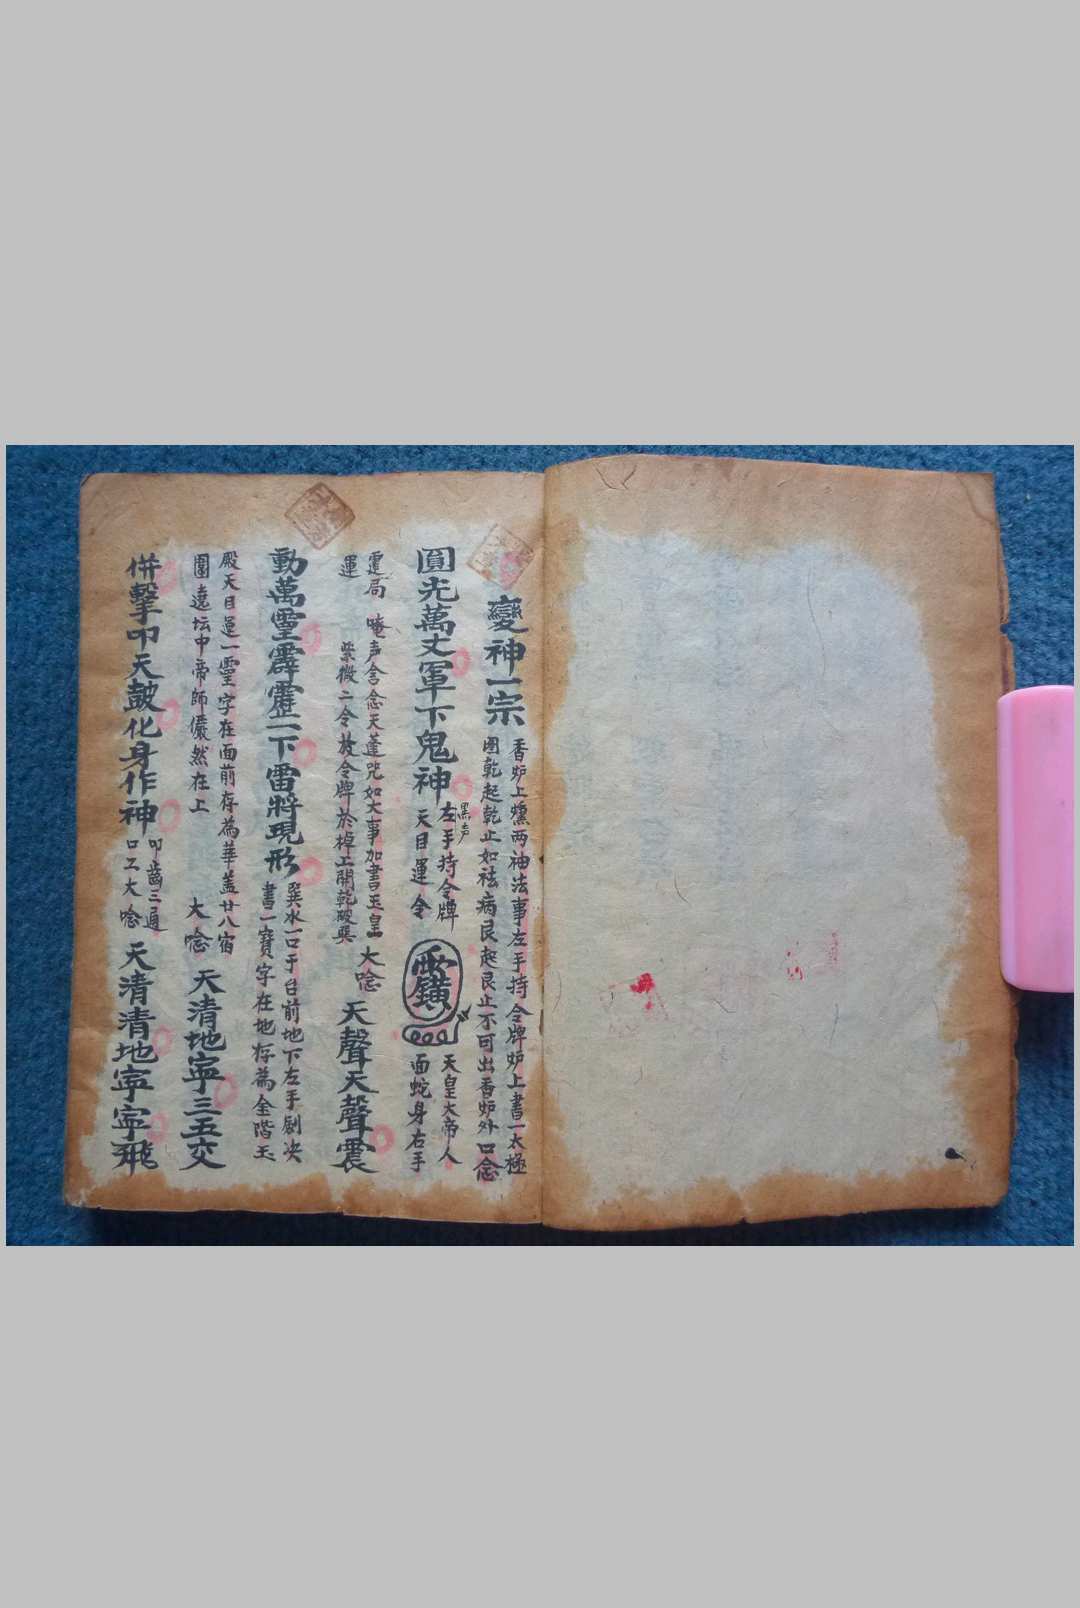 變神一宗
香炉上燻两袖法事左手持令牌炉上書一太極
圈乾起乾止如祛病艮起艮止不可出香炉外 口念
圓光萬丈軍下鬼神
黑声
左手持令牌
天目運令
天皇大帝人
面蛇身右手
運局 唵声含念天蓬咒如大事加書玉皇
運 紫微二令放令牌於棹上開乾破巽
大唸
天聲天聲震
動萬靈霹靂一下雷將現形
巽水一口于台前地下左手劍决
書一寶字在地存為金階玉
殿天目運一靈字在面前存為華蓋廿八宿
圍遶坛中帝師儼然在上
大唸
天清地寜三五交
併擊叩天鼓化身作神
叩齒三通
口工大唸
天清清地寜寜飛